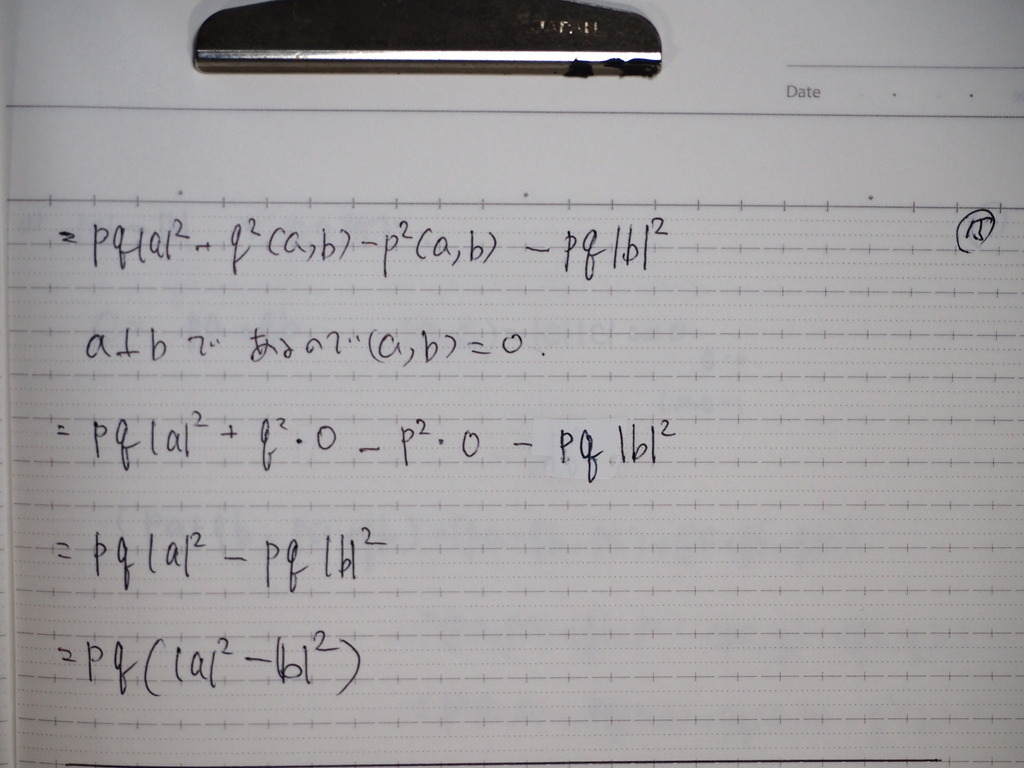 JAPAN
Date
= pq|a|² - q²(a,b) - p²(a,b) - pq|b|² ⑮
a⊥b で あるので (a,b) = 0.
= pq|a|² + q²・0 - p²・0 - pq|b|²
= pq|a|² - pq|b|²
= pq(|a|² - |b|²)